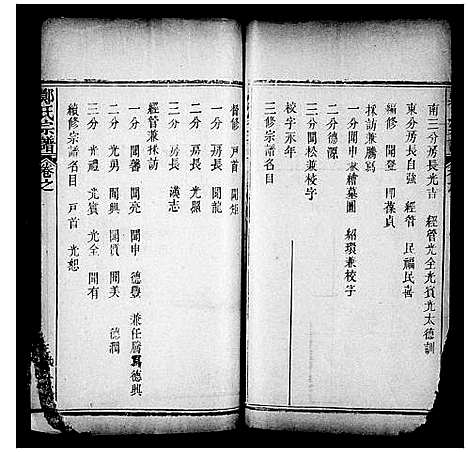 南三分房長光吉 經管光全光賓光太德訓
東分房長自強 經管 民福民喜
編修 開登 即葆貞
採訪兼謄寫
一分開申兼繪墓圖 紹環兼校字
二分德源
三分開松兼校字
校字承年
三修宗譜名目
督修 戶首 開矩
一分 房長 開龍
二分 房長 光照
三分 房長 漢志
經管兼採訪
一分 開馨 開亮 開申 德豐 兼任謄寫德興
二分 光勇 開興 開質 開美 德潤
三分 光禮 光賓 光全 開有
續修宗譜名目 戶首 光恕
鄭氏宗譜 卷之